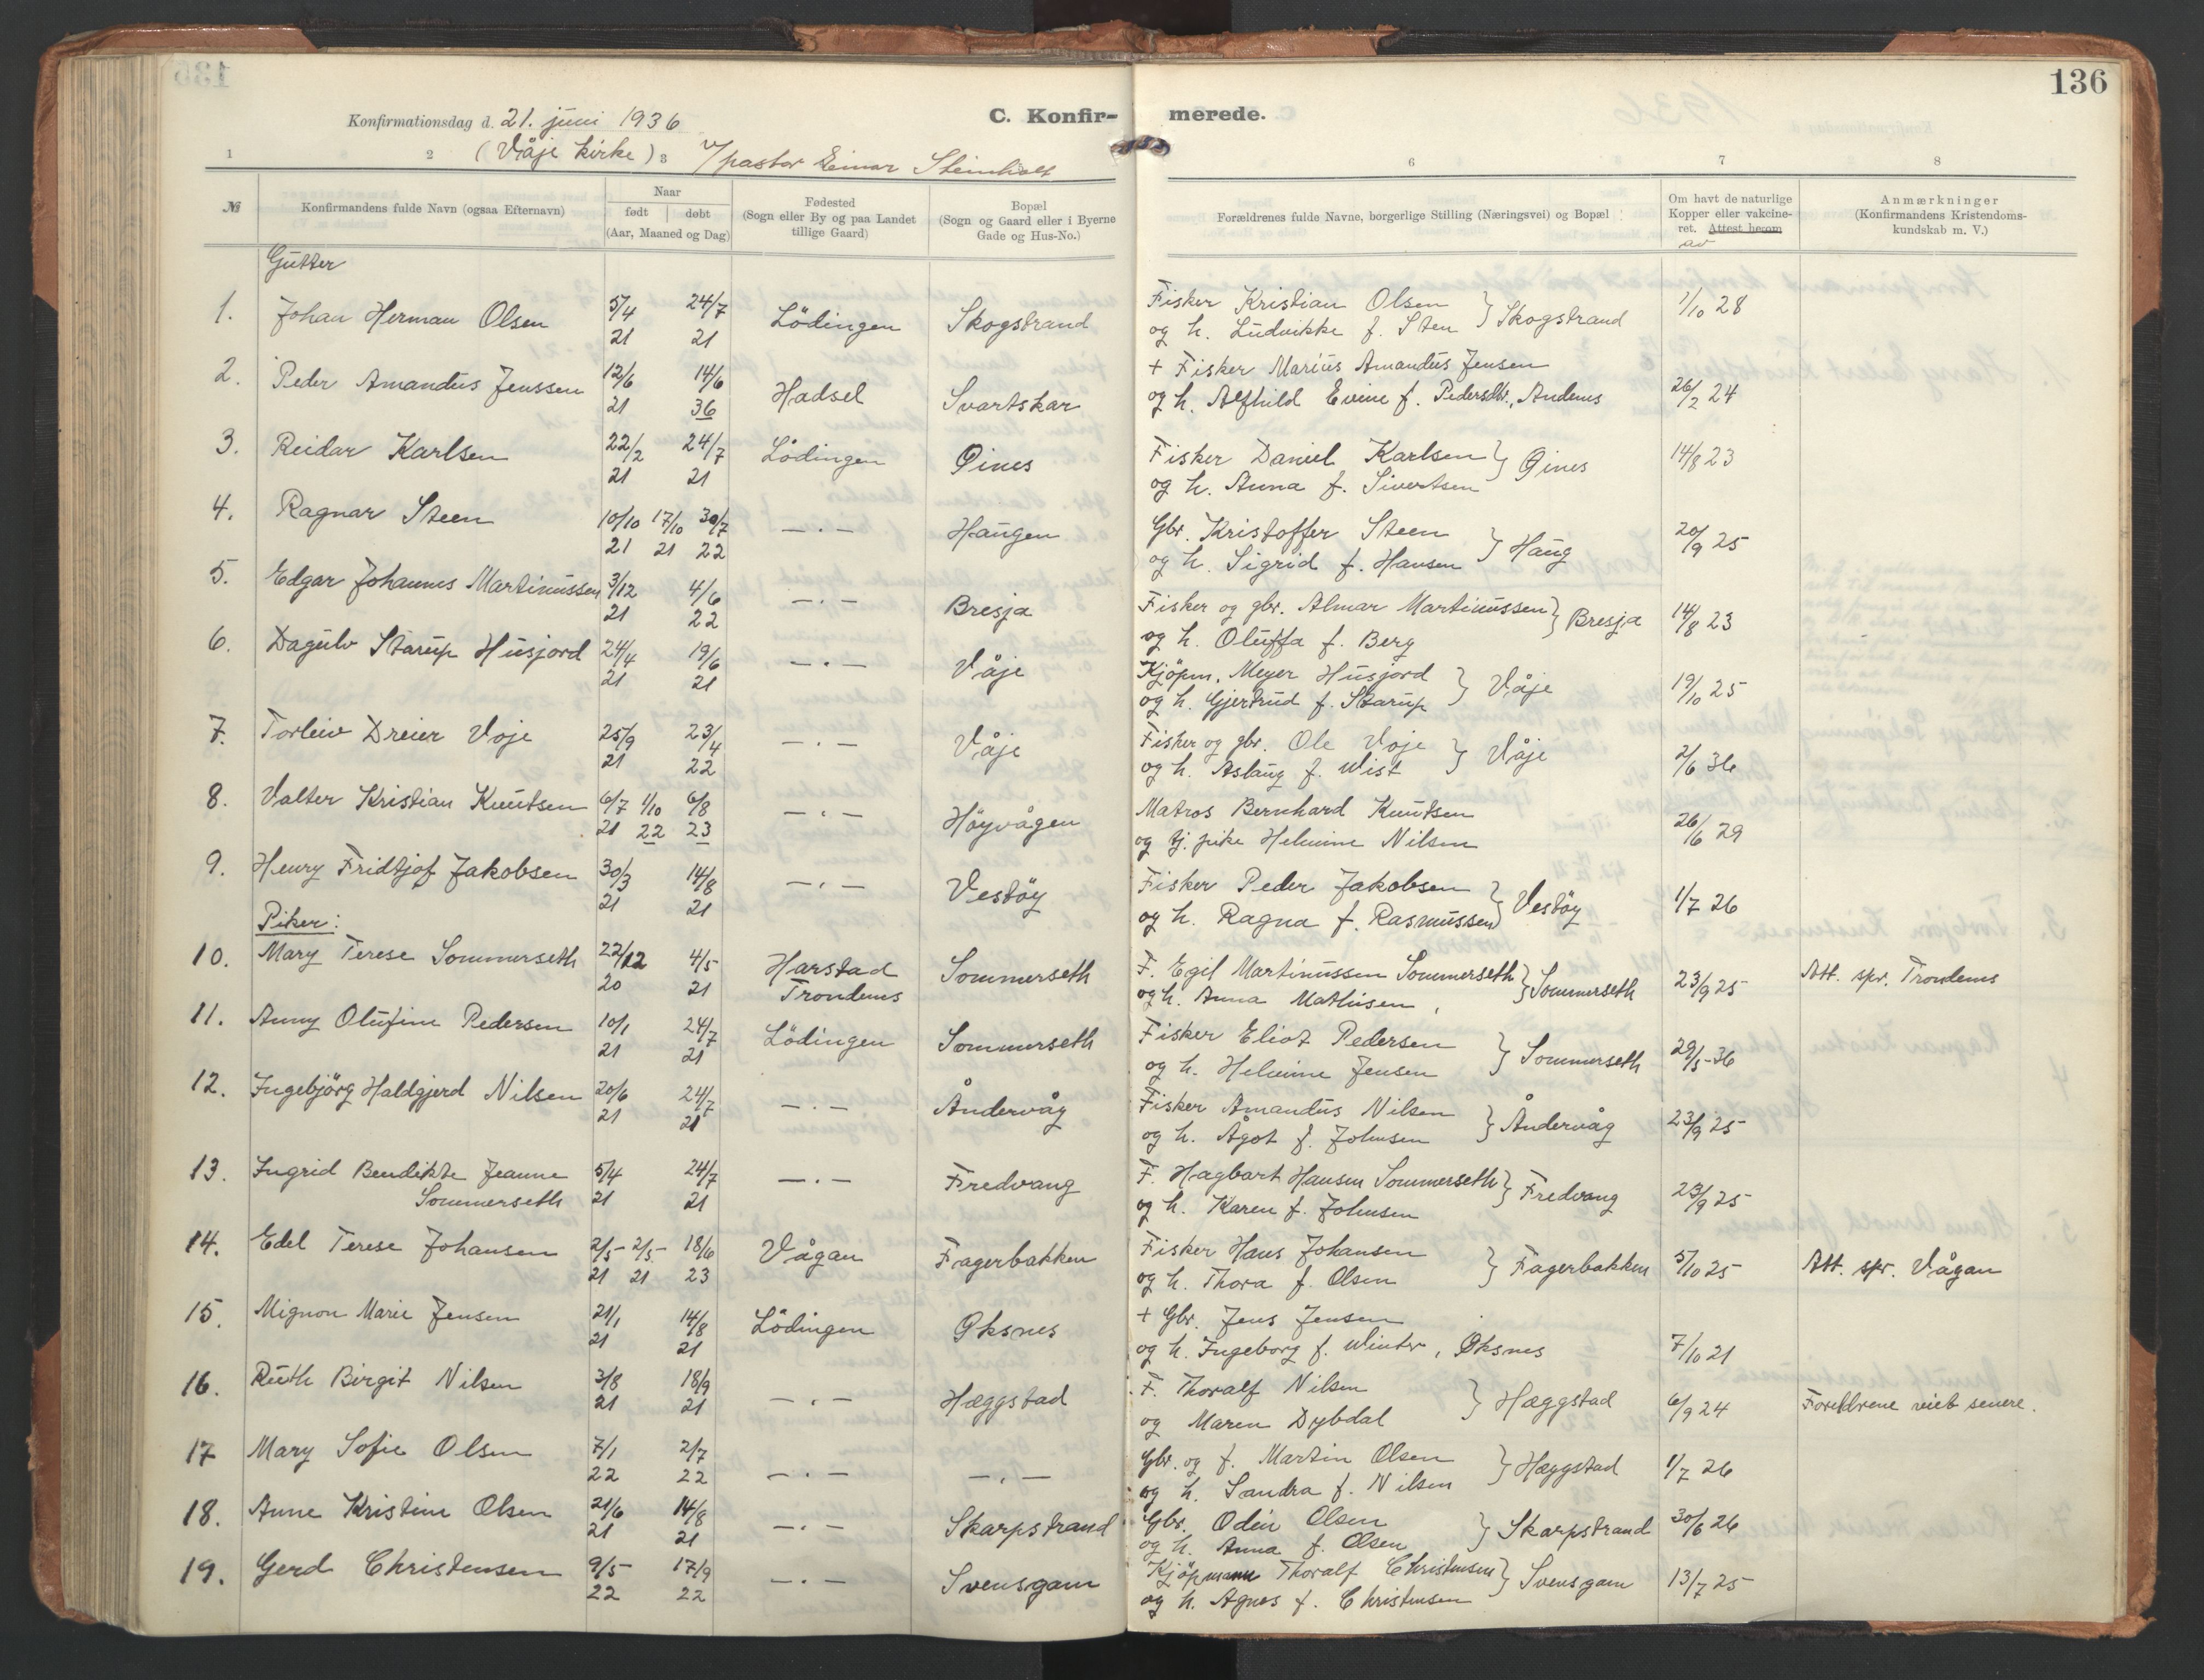 136
Konfirmationsdag d. 21. juni 1936
C. Konfirmerede.
(Våje kirke) v/pastor Einar Steinholt
1 2 3 6 7 8
№
Konfirmandens fulde Navn (ogsaa Efternavn)
Naar
født døbt
(Aar, Maaned og Dag)
Fødested
(Sogn eller By og paa Landet
tillige Gaard)
Bopæl
(Sogn og Gaard eller i Byerne
Gade og Hus-No.)
Forældrenes fulde Navne, borgerlige Stilling (Næringsvei) og Bopæl
Om havt de naturlige
Kopper eller vakcine-
ret. Attest herom
av
Anmærkninger
(Konfirmandens Kristendoms-
kundskab m. V.)
Gutter
1. Johan Herman Olsen 5/4 24/7 Lödingen Skogstrand Fisker Kristian Olsen } Skogstrand 1/10 28
21 21 og h. Ludvikke f. Sten
2. Peder Amandus Jenssen 12/6 14/6 Hadsel Svartskar + Fisker Marius Amandus Jensen
21 36 og h. Alfhild Evine f. Pedersdtr., Andenes 26/2 24
3. Reidar Karlsen 22/2 24/7 Lödingen Øines Fisker Daniel Karlsen } Øines 14/8 23
21 21 og h. Anna f. Sivertsen
4. Ragnar Steen 10/10 17/10 30/7 —·— Haugen Gbr. Kristoffer Steen } Haug 20/9 25
21 21 22 og h. Sigrid f. Hansen
5. Edgar Johannes Martinussen 3/12 4/6 —·— Bresja Fisker og gbr. Almar Martinussen } Bresja 14/8 23
21 22 og h. Oluffa f. Berg
6. Dagulv Starup Husjord 24/4 19/6 —·— Våje Kjöpm. Meyer Husjord } Våje 19/10 25
21 21 og h. Gjertrud f. Starup
7. Torleiv Dreier Voje 25/9 23/4 —·— Våje Fisker og gbr. Ole Voje } Våje 2/6 36
21 22 og h. Aslaug f. Wist
8. Valter Kristian Knutsen 6/7 1/10 6/8 —·— Höyvågen Matros Bernhard Knutsen 26/6 29
21 22 23 og tj. pike Helmine Nilsen
9. Henry Fridtjof Jakobsen 30/3 14/8 —·— Vestöy Fisker Peder Jakobsen } Vestöy 1/7 26
21 21 og h. Ragna f. Rasmussen
Piker:
10. Mary Terese Sommerseth 22/12 4/5 Harstad Sommerseth F. Egil Martinussen Sommerseth } Sommerseth 23/9 25 Att. spr. Trondenes
20 21 Trondenes og h. Anna Mathisen
11. Anny Olufine Pedersen 10/1 24/7 Lödingen Sommerseth Fisker Eliot Pedersen } Sommerseth 29/5-36
21 21 og h. Helmine Jensen
12. Ingebjörg Haldgjerd Nilsen 20/6 24/7 —·— Åndervåg Fisker Amandus Nilsen } Åndervåg 23/9 25
21 21 og h. Ågot f. Johnsen
13. Ingrid Bendikte Jeanne 5/4 24/7 —·— Fredvang F. Hagbart Hansen Sommerseth } Fredvang 23/9 25
Sommerseth 21 21 og h. Karen f. Johnsen
14. Edel Terese Johansen 2/5 2/5 18/6 Vågan Fagerbakken Fisker Hans Johansen } Fagerbakken 5/10 25 Att. spr. Vågan
21 21 23 og h. Thora f. Olsen
15. Mignon Marie Jensen 21/1 14/8 Lödingen Øksnes + Gbr. Jens Jensen
21 21 og h. Ingeborg f. Winter, Øksnes 7/10 21
16. Ruth Birgit Nilsen 3/8 18/9 —·— Hæggstad F. Thoralf Nilsen } Hæggstad 6/9 24 Foreldrene viet senere.
21 21 og Maren Dybdal
17 Mary Sofie Olsen 7/1 2/7 —·— —·— Gbr. og f. Martin Olsen } Hæggstad 1/7 26
22 22 og h. Sandra f. Nilsen
18. Anne Kristine Olsen 21/6 14/8 —·— Skarpstrand Gbr. Odin Olsen } Skarpstrand 30/6 26
21 21 og h. Anna f. Olsen
19. Gerd Christensen 9/5 17/9 —·— Svensgam Kjöpmann Thoralf Christensen } Svensgam 13/7 25
22 22 og h. Agnes f. Christensen